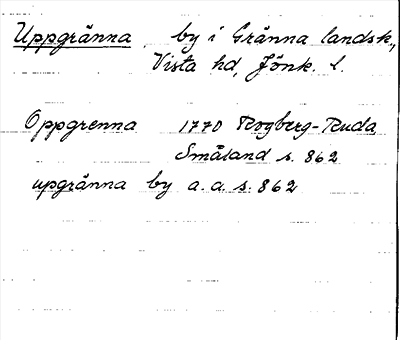 Uppgränna by i Gränna landsk.,
Vista hd, Jönk. l.
Oppgrenna 1770 Rogberg-Ruda
Småland s. 862
upgränna by a. a. s. 862